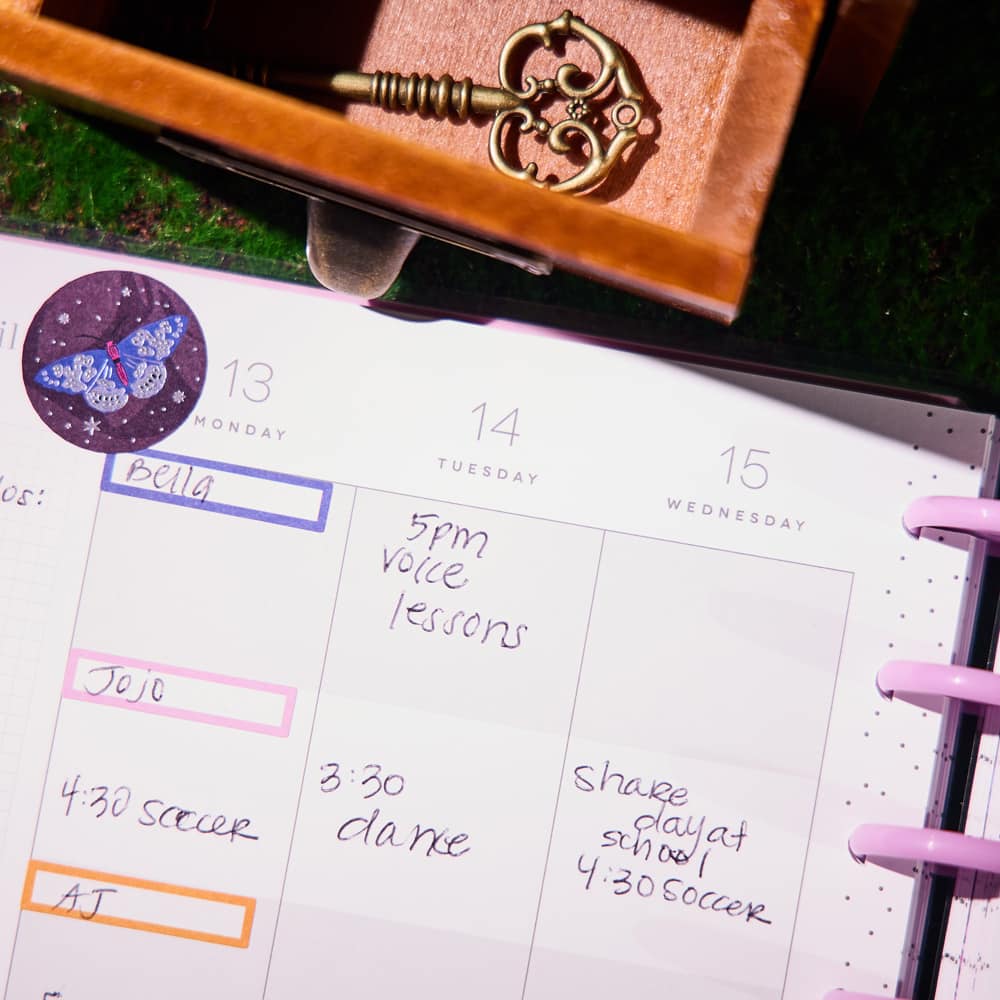 il
13
MONDAY
14
TUESDAY
15
WEDNESDAY
os:
Bella
5pm
voice
lessons
Jojo
4:30 soccer
3:30
dance
share
day at
school
4:30 soccer
AJ